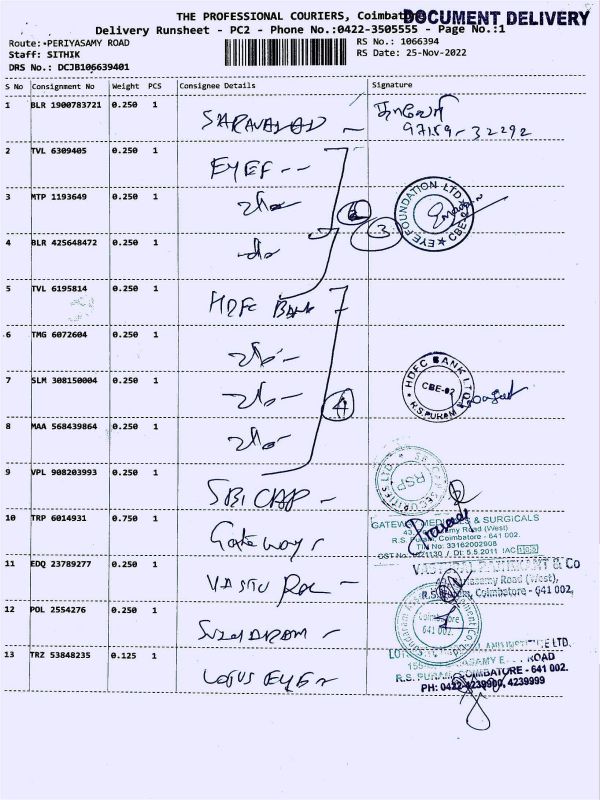 THE PROFESSIONAL COURIERS, Coimbatore
DOCUMENT DELIVERY
Delivery Runsheet - PC2 - Phone No.:0422-3505555 - Page No.:1
Route:*PERIYASAMY ROAD
RS No.: 1066394
Staff: SITHIK
RS Date: 25-Nov-2022
DRS No.: DCJB106639401
S No Consignment No Weight PCS Consignee Details Signature
1 BLR 1900783721 0.250 1 SARAVANAN
97159-32292
2 TVL 6309405 0.250 1 EYEF --
3 MTP 1193649 0.250 1
EYE FOUNDATION LTD CBE-02
3
4 BLR 425648472 0.250 1
5 TVL 6195814 0.250 1 HDFC BANK
6 TMG 6072604 0.250 1
7 SLM 308150004 0.250 1
HDFC BANK LTD. CBE-02 R.S.PURAM
4
8 MAA 568439864 0.250 1
9 VPL 908203993 0.250 1 SBI CAP
SECURITIES LTD RSP
10 TRP 6014931 0.750 1 Gateway
GATEWAY MEDICALS & SURGICALS
Samy Road (West)
R.S. Puram, Coimbatore - 641 002.
TIN No: 33162002908
Dt: 5.5.2011
11 EDQ 23789277 0.250 1 VASTU
& Co
Road (West),
R.S. Puram, Coimbatore - 641 002.
12 POL 2554276 0.250 1 SUNDARAM
Coimbatore
641 002.
13 TRZ 53848235 0.125 1 LOTUS EYE
ROAD
R.S. PURAM, COIMBATORE - 641 002.
PH: 0422-4239900, 4239999